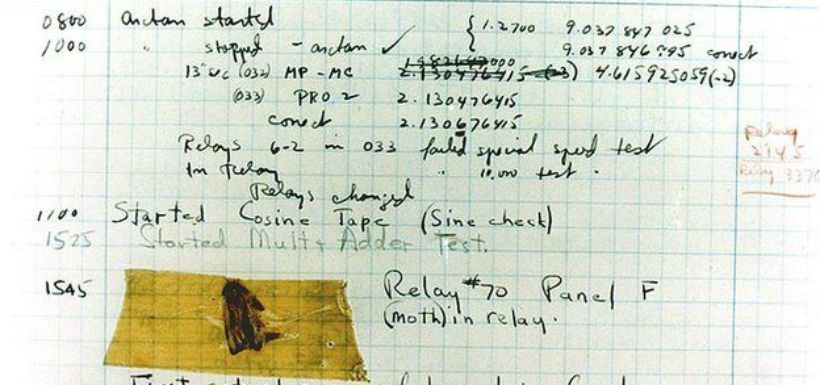 0800 arctan started { 1.2700 9.037 847 025
1000 " stopped - arctan ✓ 9.037 846 995 correct
13"uc (032) MP - MC 2.130476415 (-3) 4.615925059(-2)
(033) PRO 2 2.130476415
correct 2.130676415
Relays 6-2 in 033 failed special speed test
In Relay " 10,000 test.
Relays changed
Relay
2145
Relay 3370
1100 Started Cosine Tape (Sine check)
1525 Started Mult + Adder Test.
1545 Relay #70 Panel F
(moth) in relay.
First actual